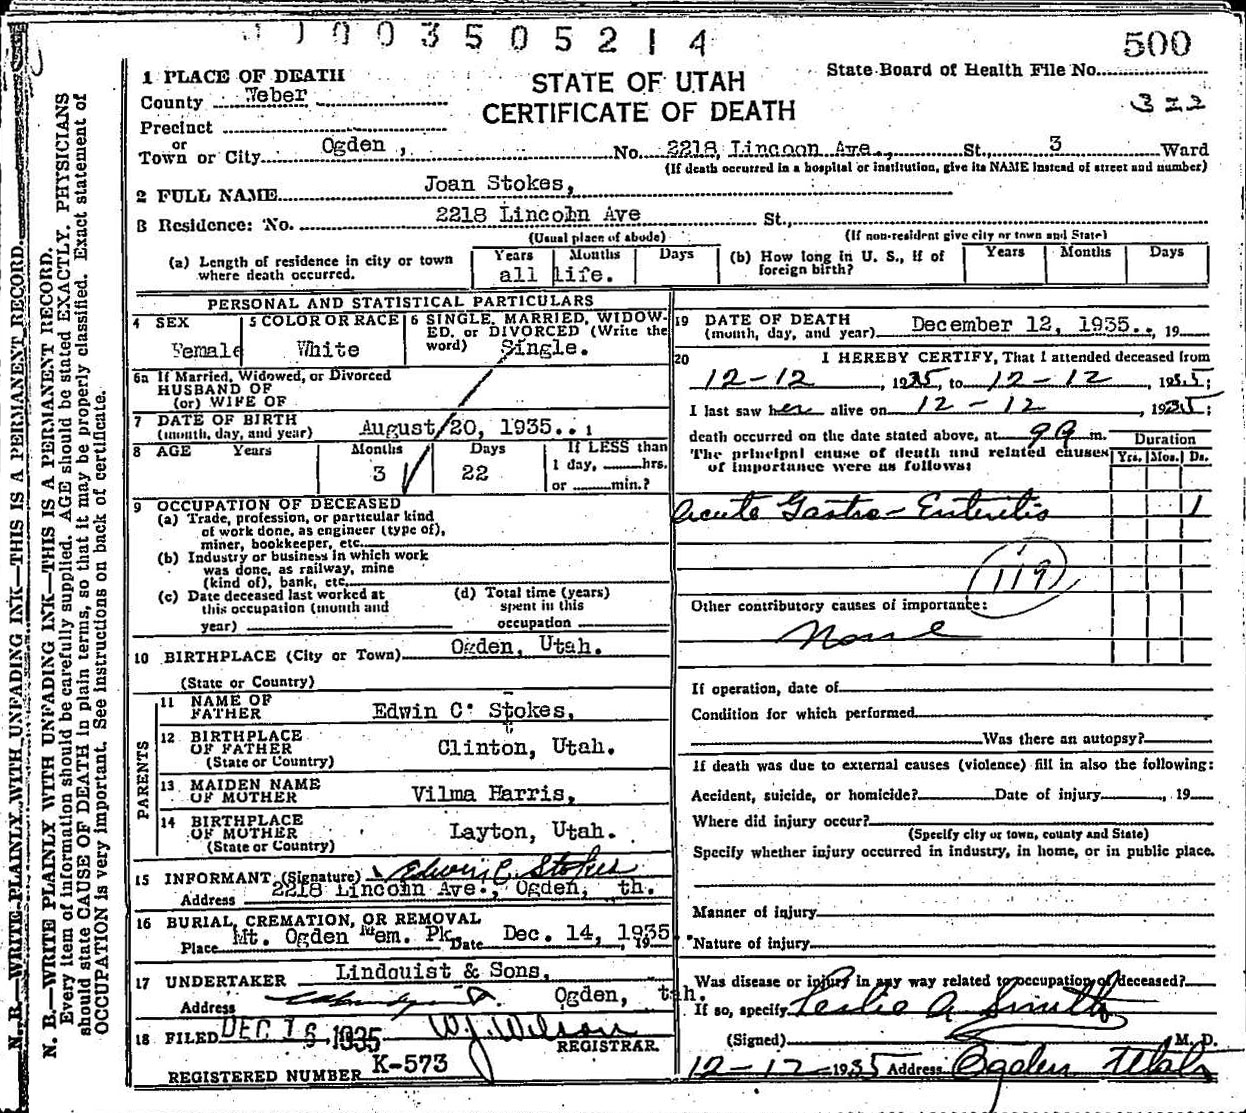 1 1 0 0 3 5 0 5 2 1 4
500
1 PLACE OF DEATH
STATE OF UTAH
State Board of Health File No.
County Weber
CERTIFICATE OF DEATH
322
Precinct
or
Town or City Ogden, No. 2218, Lincoon Ave., St., 3 Ward
(If death occurred in a hospital or institution, give its NAME instead of street and number)
2 FULL NAME Joan Stokes,
3 Residence: No. 2218 Lincoln Ave St.,
(Usual place of abode) (If non-resident give city or town and State)
(a) Length of residence in city or town where death occurred. Years Months Days all life.
(b) How long in U. S., if of foreign birth? Years Months Days
PERSONAL AND STATISTICAL PARTICULARS
4 SEX Female
5 COLOR OR RACE White
6 SINGLE, MARRIED, WIDOWED, or DIVORCED (Write the word) Single.
6a If Married, Widowed, or Divorced
HUSBAND OF
(or) WIFE OF
7 DATE OF BIRTH
(month, day, and year) August 20, 1935..
8 AGE Years Months Days If LESS than
3 22 1 day, hrs.
or min.?
9 OCCUPATION OF DECEASED
(a) Trade, profession, or particular kind
of work done, as engineer (type of),
miner, bookkeeper, etc.
(b) Industry or business in which work
was done, as railway, mine
(kind of), bank, etc.
(c) Date deceased last worked at
this occupation (month and
year)
(d) Total time (years)
spent in this
occupation
10 BIRTHPLACE (City or Town) Ogden, Utah.
(State or Country)
PARENTS
11 NAME OF
FATHER Edwin C. Stokes,
12 BIRTHPLACE
OF FATHER Clinton, Utah.
(State or Country)
13 MAIDEN NAME
OF MOTHER Vilma Harris,
14 BIRTHPLACE
OF MOTHER Layton, Utah.
(State or Country)
15 INFORMANT (Signature) Edwin C. Stokes
Address 2218 Lincoln Ave., Ogden, th.
16 BURIAL, CREMATION, OR REMOVAL
Place Mt. Ogden Mem. Pk. Date Dec. 14, 1935, 19
17 UNDERTAKER Lindquist & Sons,
Address Ogden, tah.
18 FILED DEC 16 1935 W. J. Wilson
REGISTRAR
REGISTERED NUMBER K-573
19 DATE OF DEATH
(month, day, and year) December 12, 1935.., 19
20 I HEREBY CERTIFY, That I attended deceased from
12-12, 1935, to 12-12, 1935;
I last saw her alive on 12-12, 1935;
death occurred on the date stated above, at 9 a m.
Duration
The principal cause of death and related causes Yrs. Mos. Ds.
of importance were as follows:
Acute Gastro-Enteritis 1
119
Other contributory causes of importance:
None
If operation, date of
Condition for which performed
Was there an autopsy?
If death was due to external causes (violence) fill in also the following:
Accident, suicide, or homicide? Date of injury , 19
Where did injury occur?
(Specify city or town, county and State)
Specify whether injury occurred in industry, in home, or in public place.
Manner of injury
Nature of injury
Was disease or injury in any way related to occupation of deceased?
If so, specify Leslie A Smith
(Signed) M. D.
12-12-1935 Address Ogden Utah
N. B.—WRITE PLAINLY WITH UNFADING INK—THIS IS A PERMANENT RECORD.
N. B.—WRITE PLAINLY WITH UNFADING INK—THIS IS A PERMANENT RECORD.
Every item of information should be carefully supplied. AGE should be stated EXACTLY. PHYSICIANS
should state CAUSE OF DEATH in plain terms, so that it may be properly classified. Exact statement of
OCCUPATION is very important. See instructions on back of certificate.